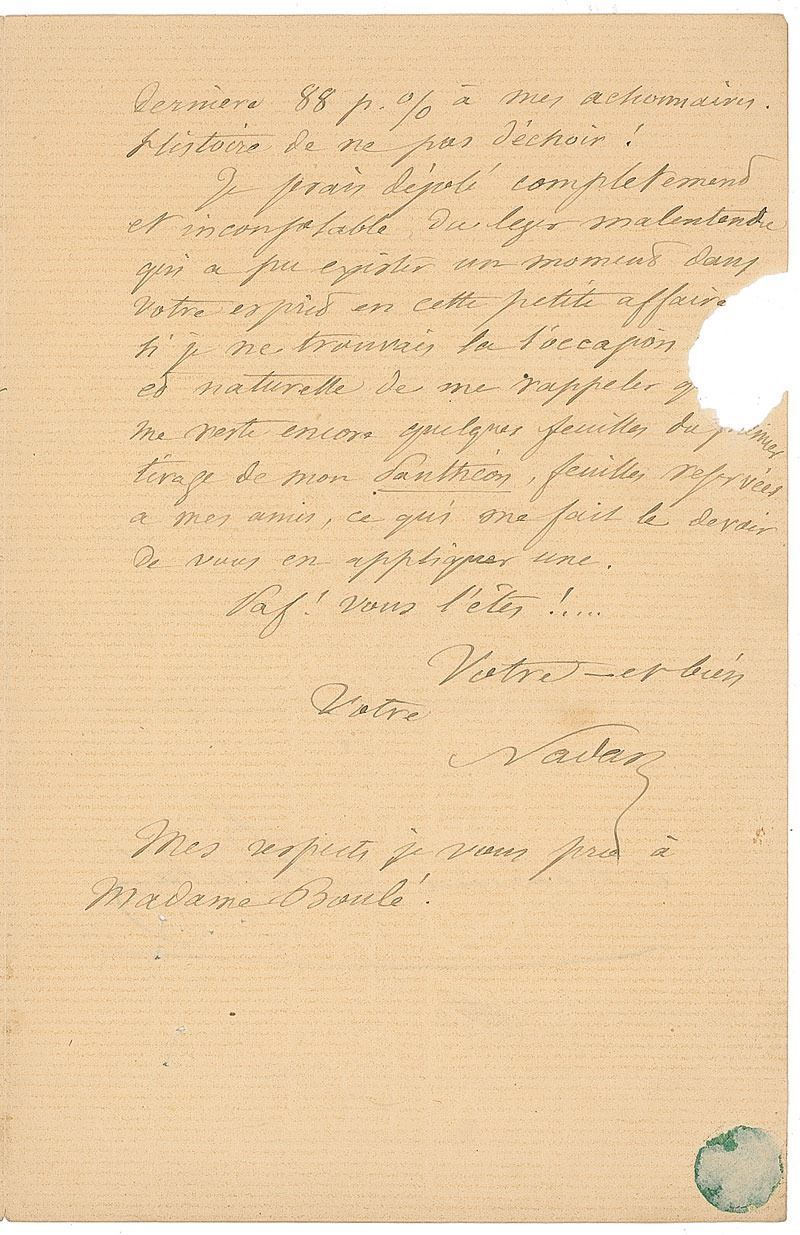 dernière 88 p. % à mes actionnaires.
Histoire de ne pas déchoir !
Je serais désolé complètement
et inconsolable du leger malentendu
qui a pu exister un moment dans
votre esprit en cette petite affaire
si je ne trouvais là l'occasion
et naturelle de me rappeler
me reste encore quelques feuilles du premier
tirage de mon Panthéon, feuilles reservées
à mes amis, ce qui me fait le devoir
de vous en appliquer une.
Paf ! vous l'êtes !....
Votre — et bien
Votre
Nadar
Mes respects je vous prie à
Madame Boulé.